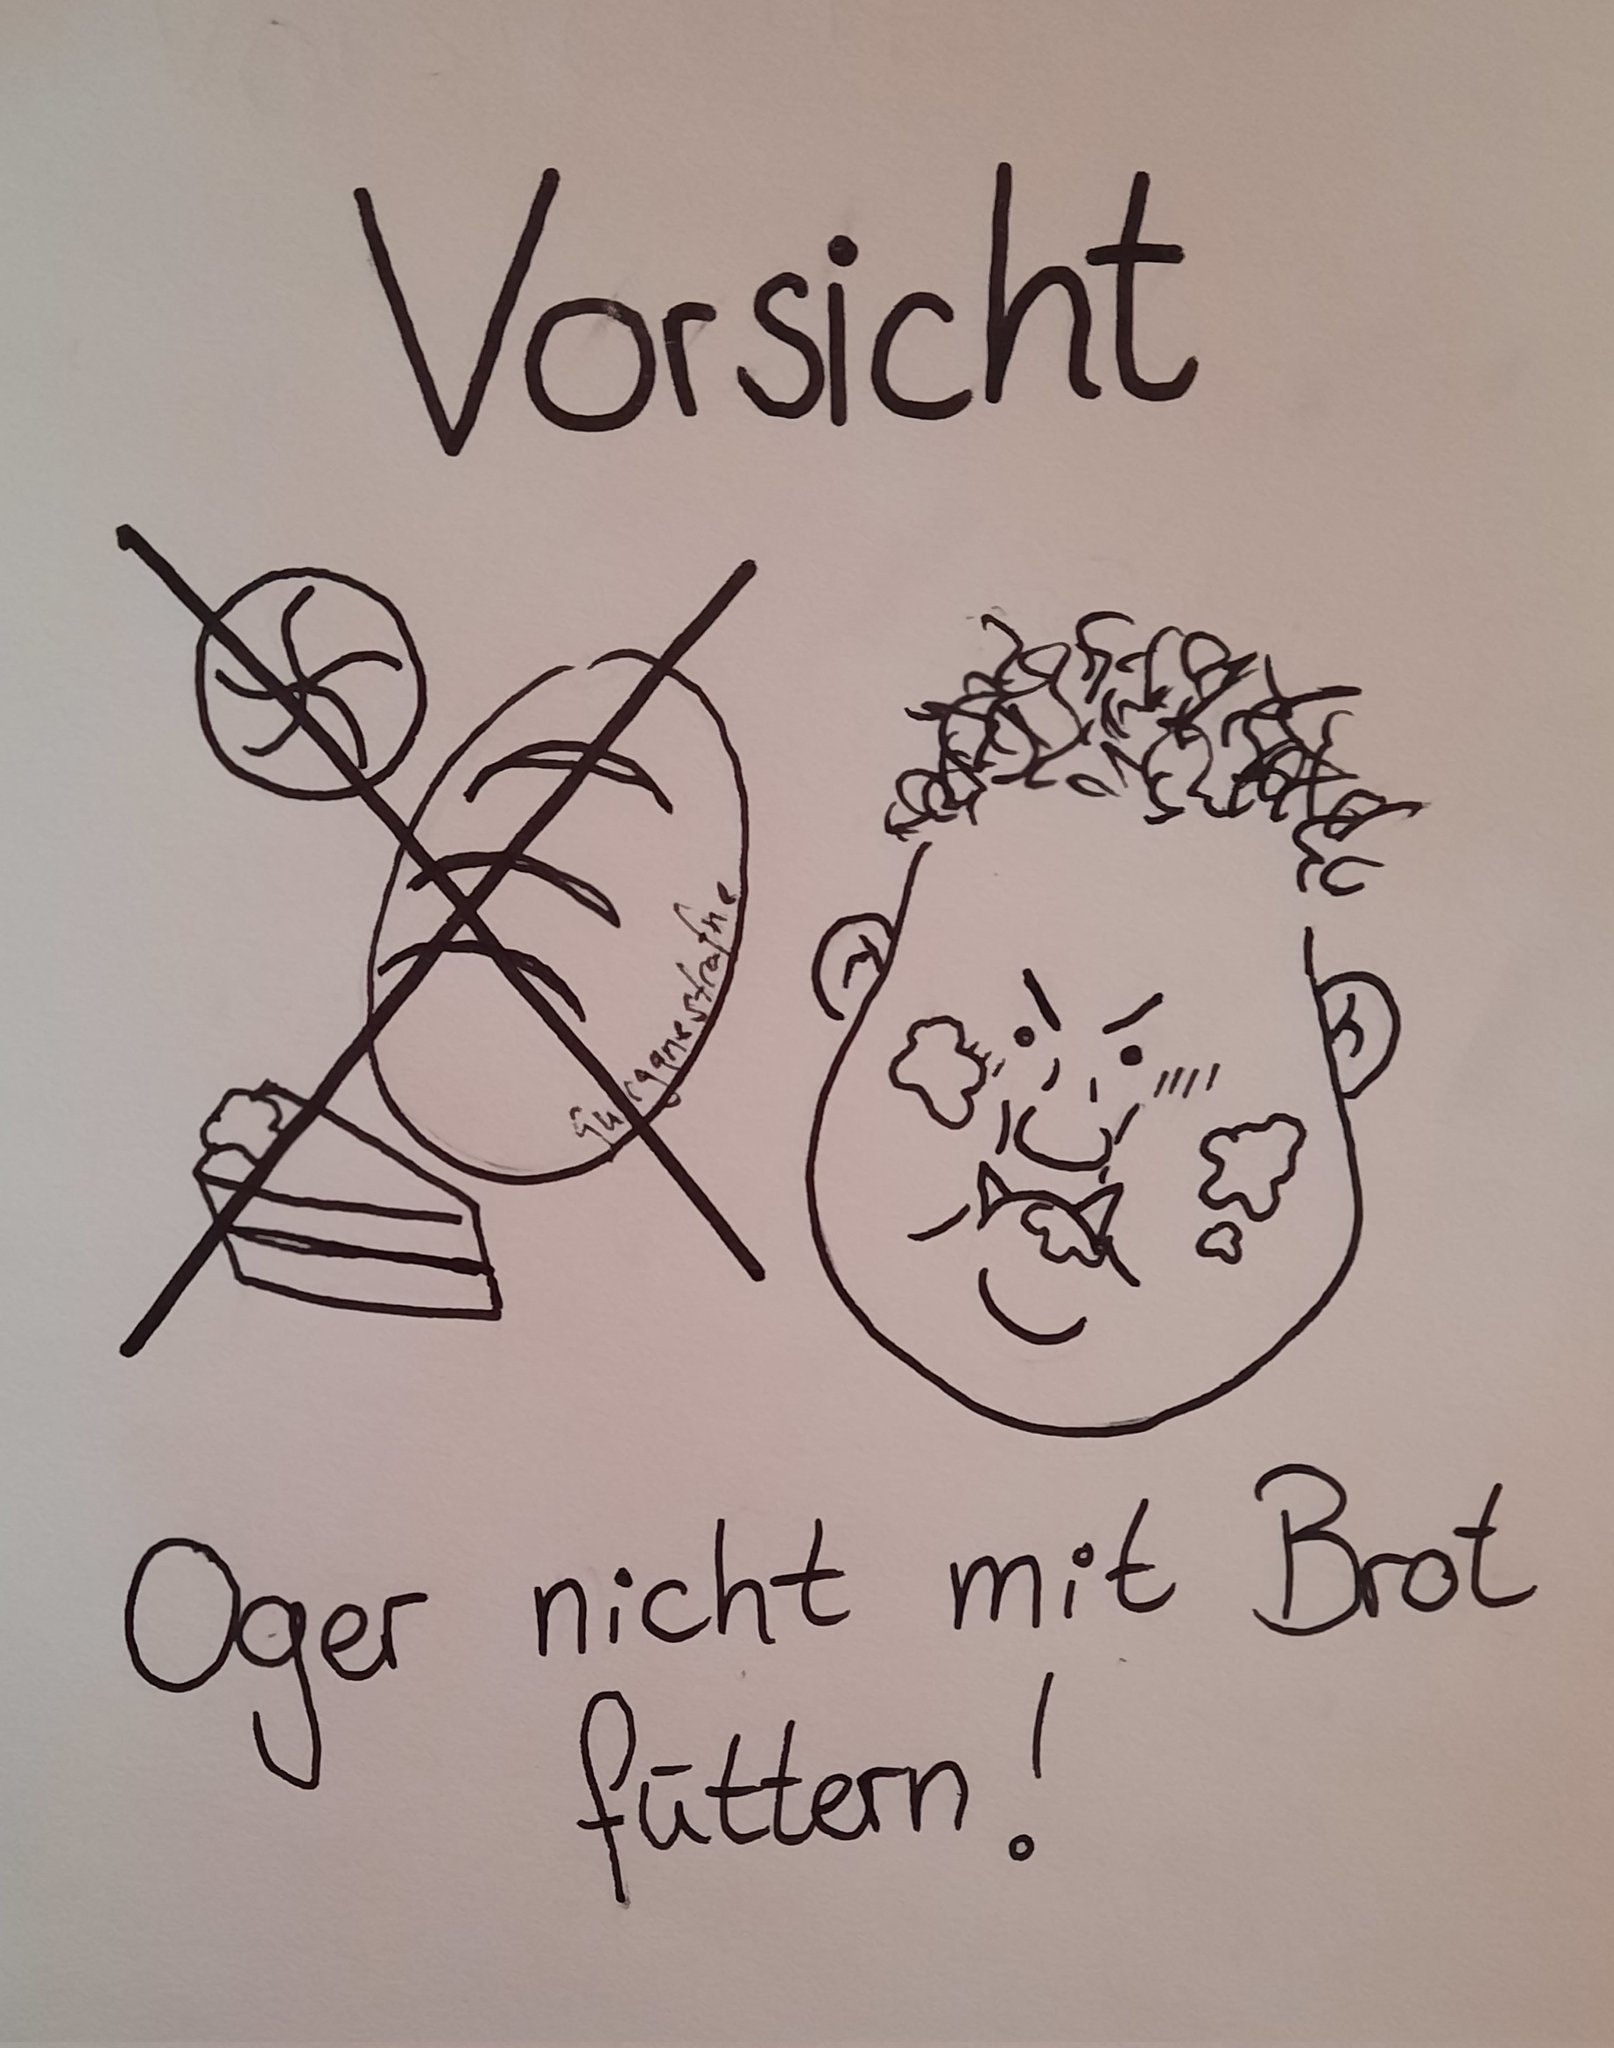 Vorsicht
Oger nicht mit Brot
füttern!